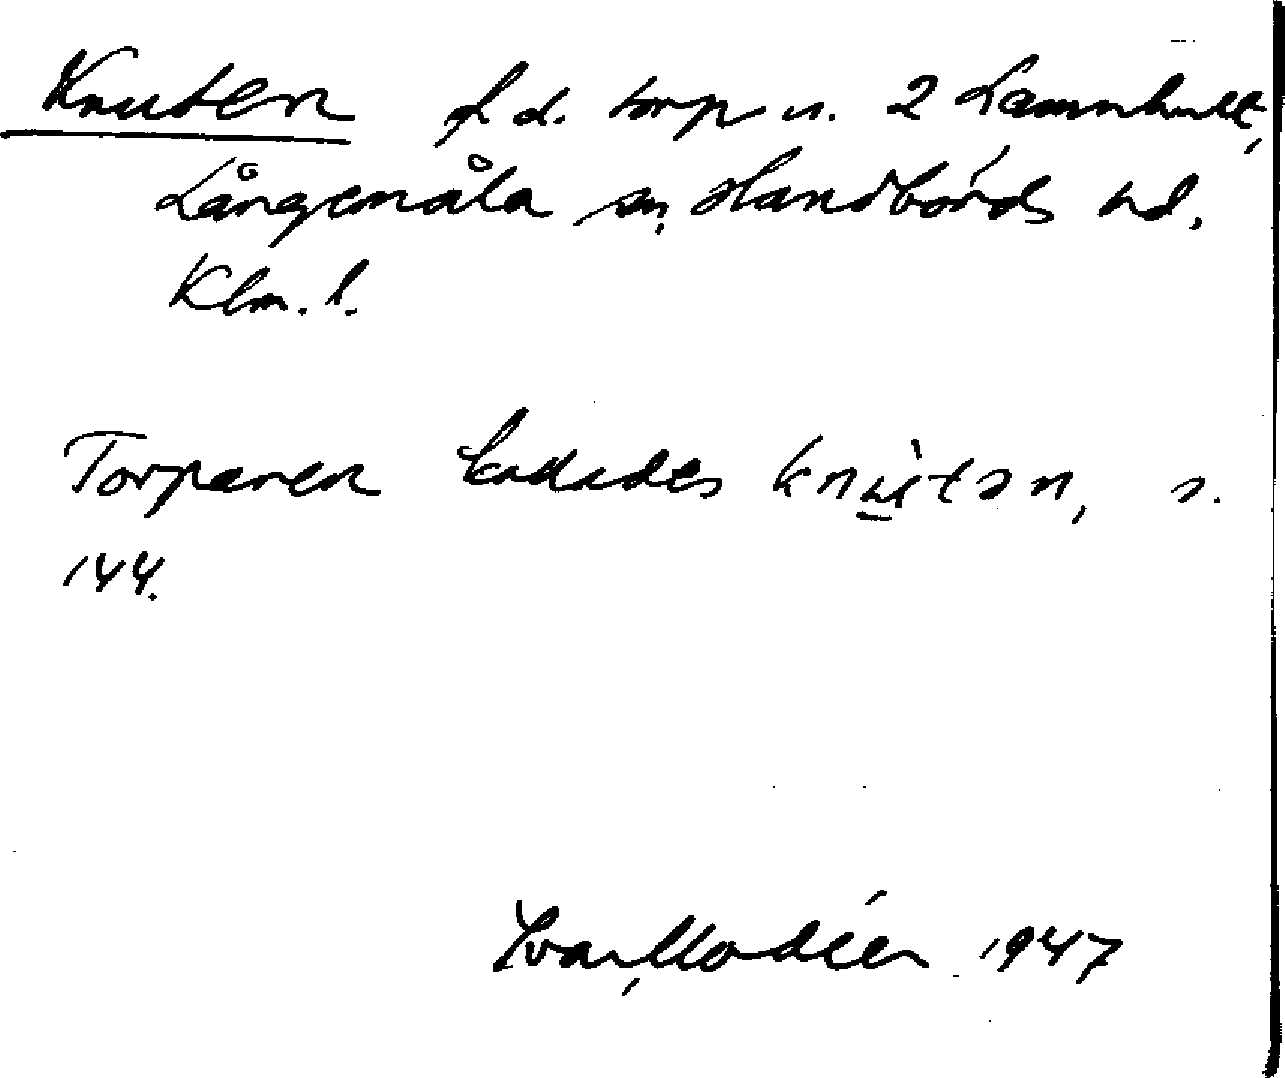 Knuten f. d. torp u. 2 Lammhult,
Långemåla sn, Handbörds hd.
Klm. l.
Torparen kallades knutən, s.
144.
Ivar Modéer 1947